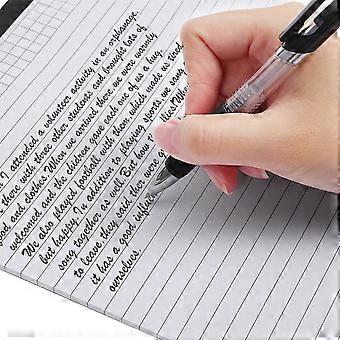 I attended a volunteer activity in an orphanage.
there with three other students and brought lots of
food, and clothes. When we arrived there we were warmly
welcomed, and the children gave each one of us a hug.
We also played football with them, which made us tired
but happy. In addition to playing sports, we sang
song together, as well. But how
to leave, they said, they were
it has a good influe
ourselves.